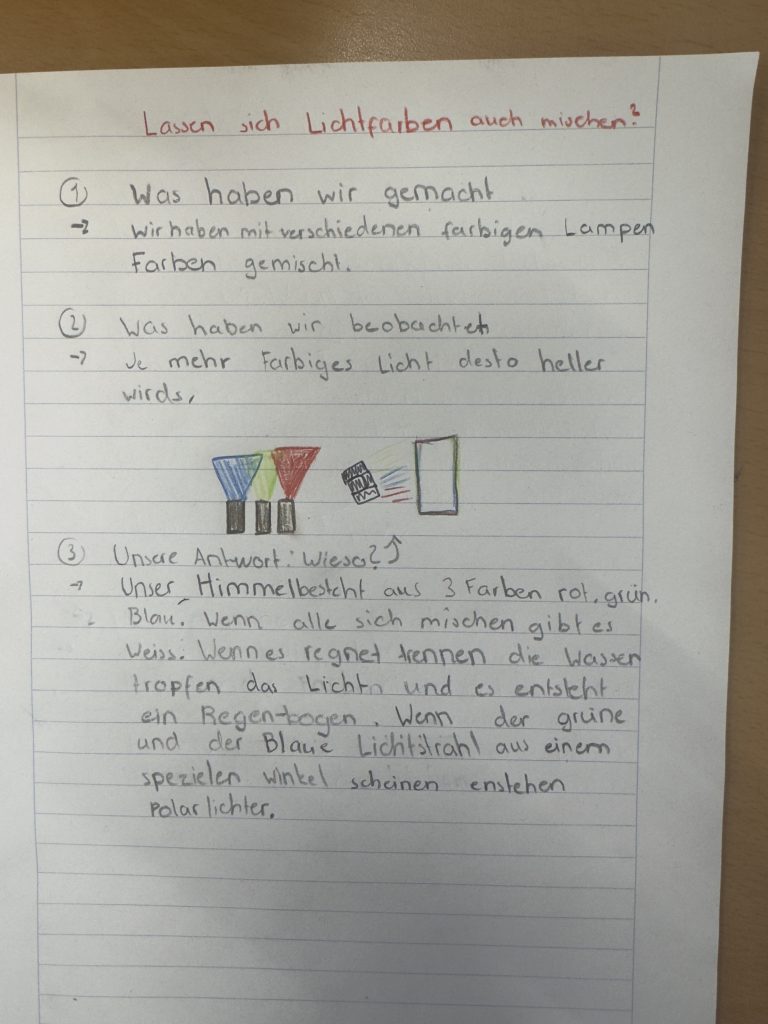 Lassen sich Lichtfarben auch mischen?
① Was haben wir gemacht
→ Wir haben mit verschiedenen farbigen Lampen
Farben gemischt.
② Was haben wir beobachtet
→ Je mehr Farbiges Licht desto heller
wirds.
③ Unsere Antwort: Wieso?
→ Unser Himmel besteht aus 3 Farben rot, grün,
Blau. Wenn alle sich mischen gibt es
Weiss. Wenn es regnet trennen die Wasser
tropfen das Licht und es entsteht
ein Regenbogen. Wenn der grüne
und der Blaue Lichtstrahl aus einem
spezielen winkel scheinen enstehen
Polarlichter.